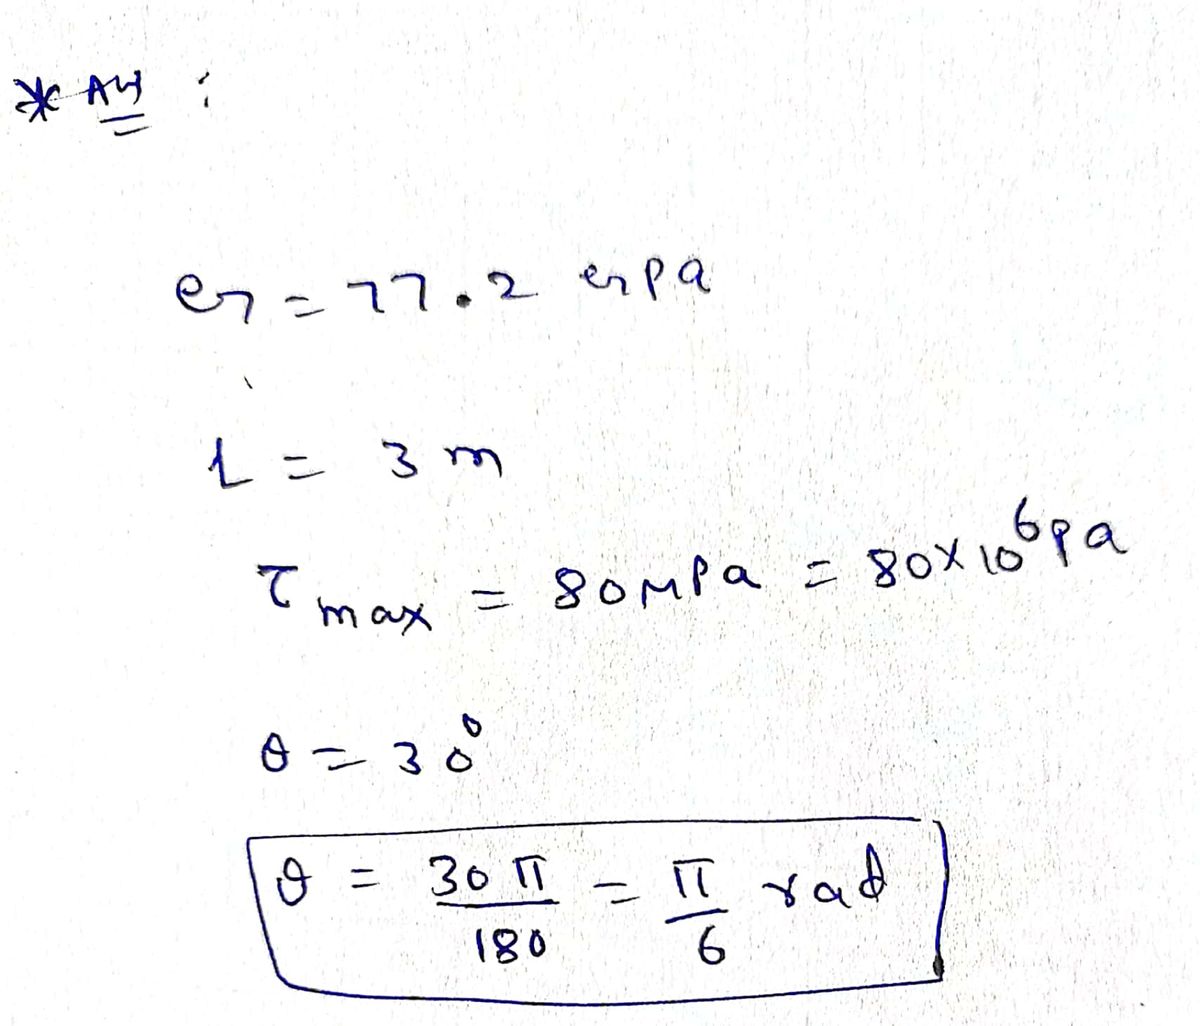 * Ans :
G = 77.2 GPa
L = 3 m
τmax = 80MPa = 80×10⁶Pa
θ = 30°
θ = 30π/180 = π/6 rad